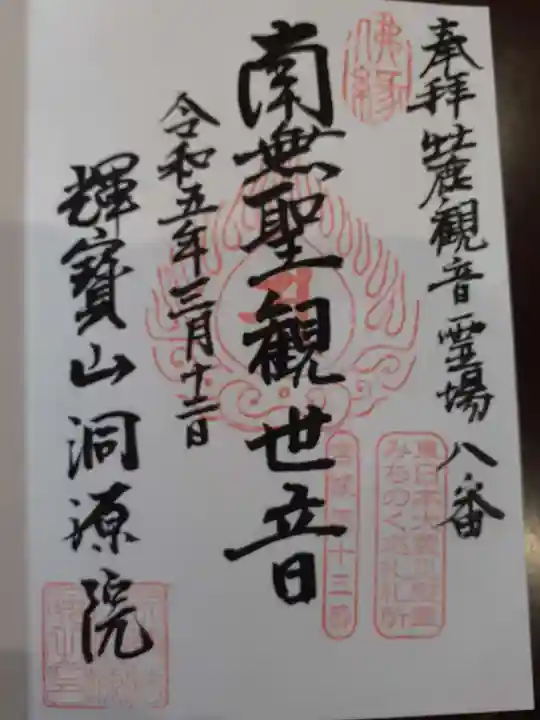 奉拝 牡鹿観音霊場 八番
佛縁
東日本大震災慰霊
みちのく巡礼札所
南無聖観世音
令和五年三月十二日
輝寶山洞源院